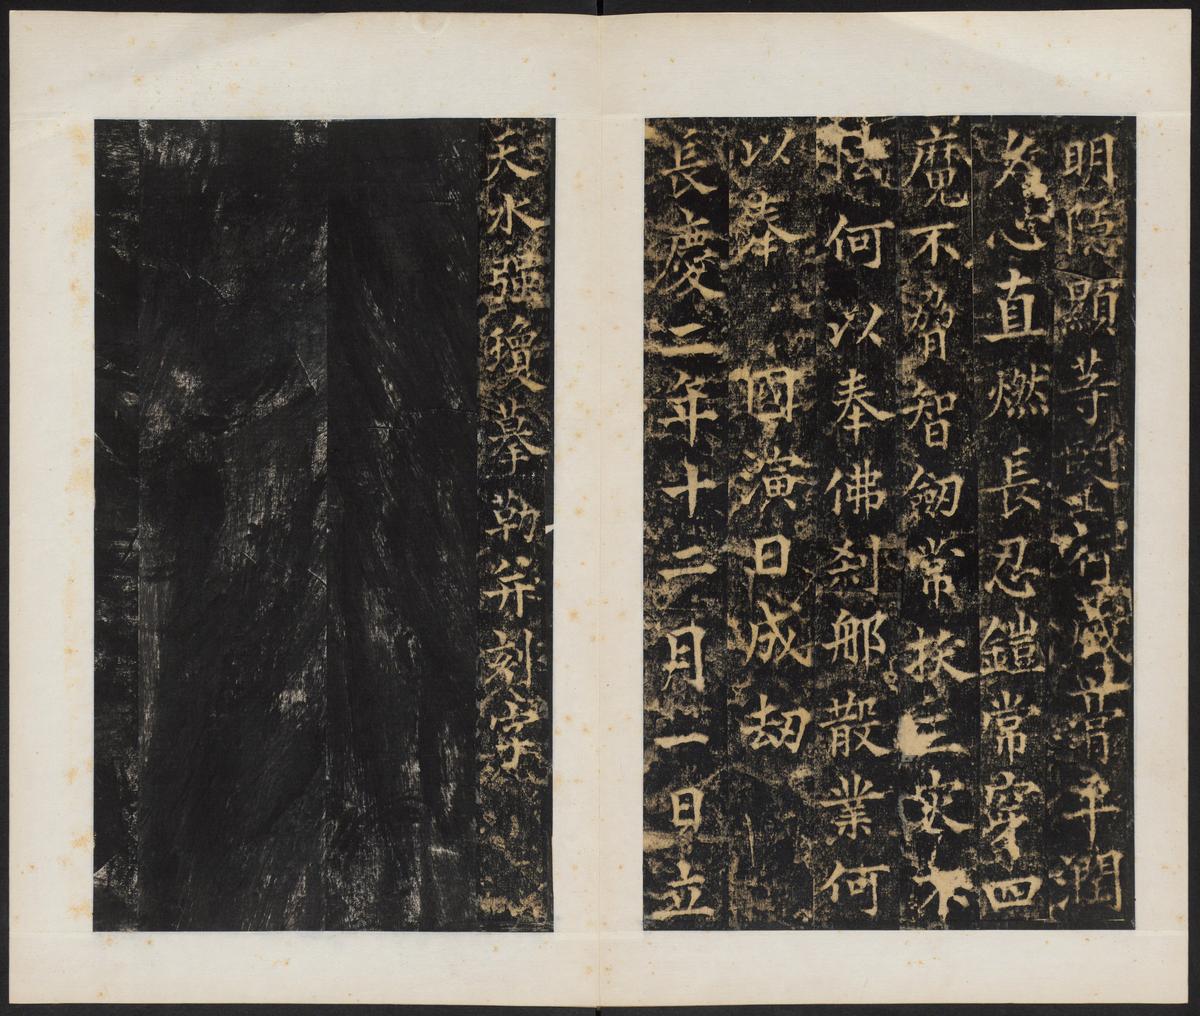 明隱顯等藏平潤
心直燃長忍鎧常穿四
魔不脅智劔常扶三毒不
怯何以奉佛剎那散業何
以奉國演日成劫
長慶二年十二月一日立
天水强瓊摹勒并刻字